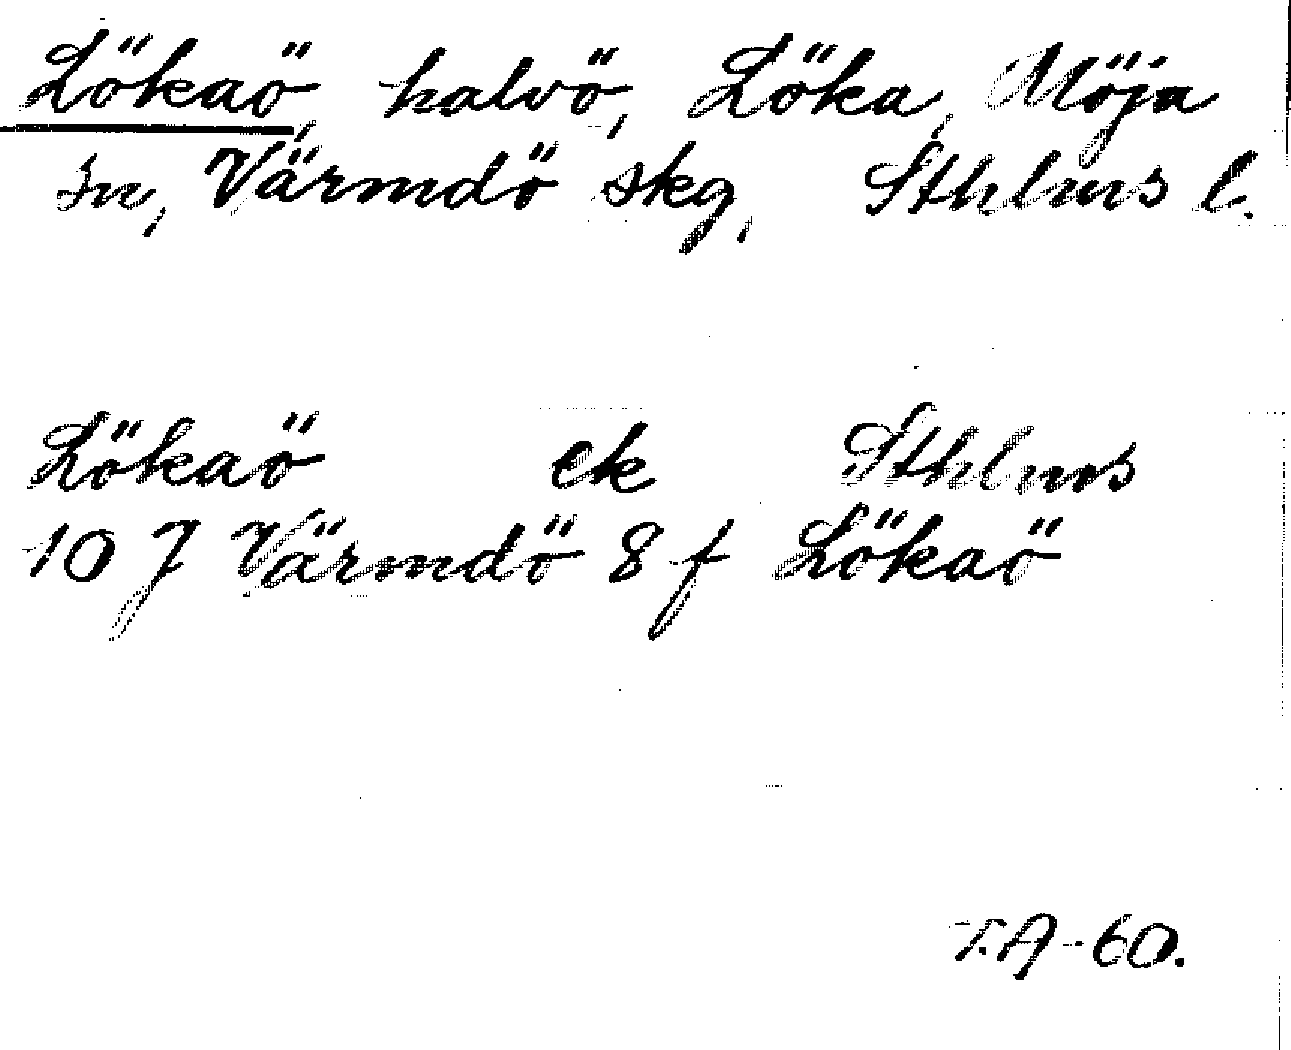 Lökaö, halvö, Löka, Möja
sn, Värmdö skg, Sthlms l.
Lökaö ek Sthlms
10 J Värmdö 8 f Lökaö
T.A-60.